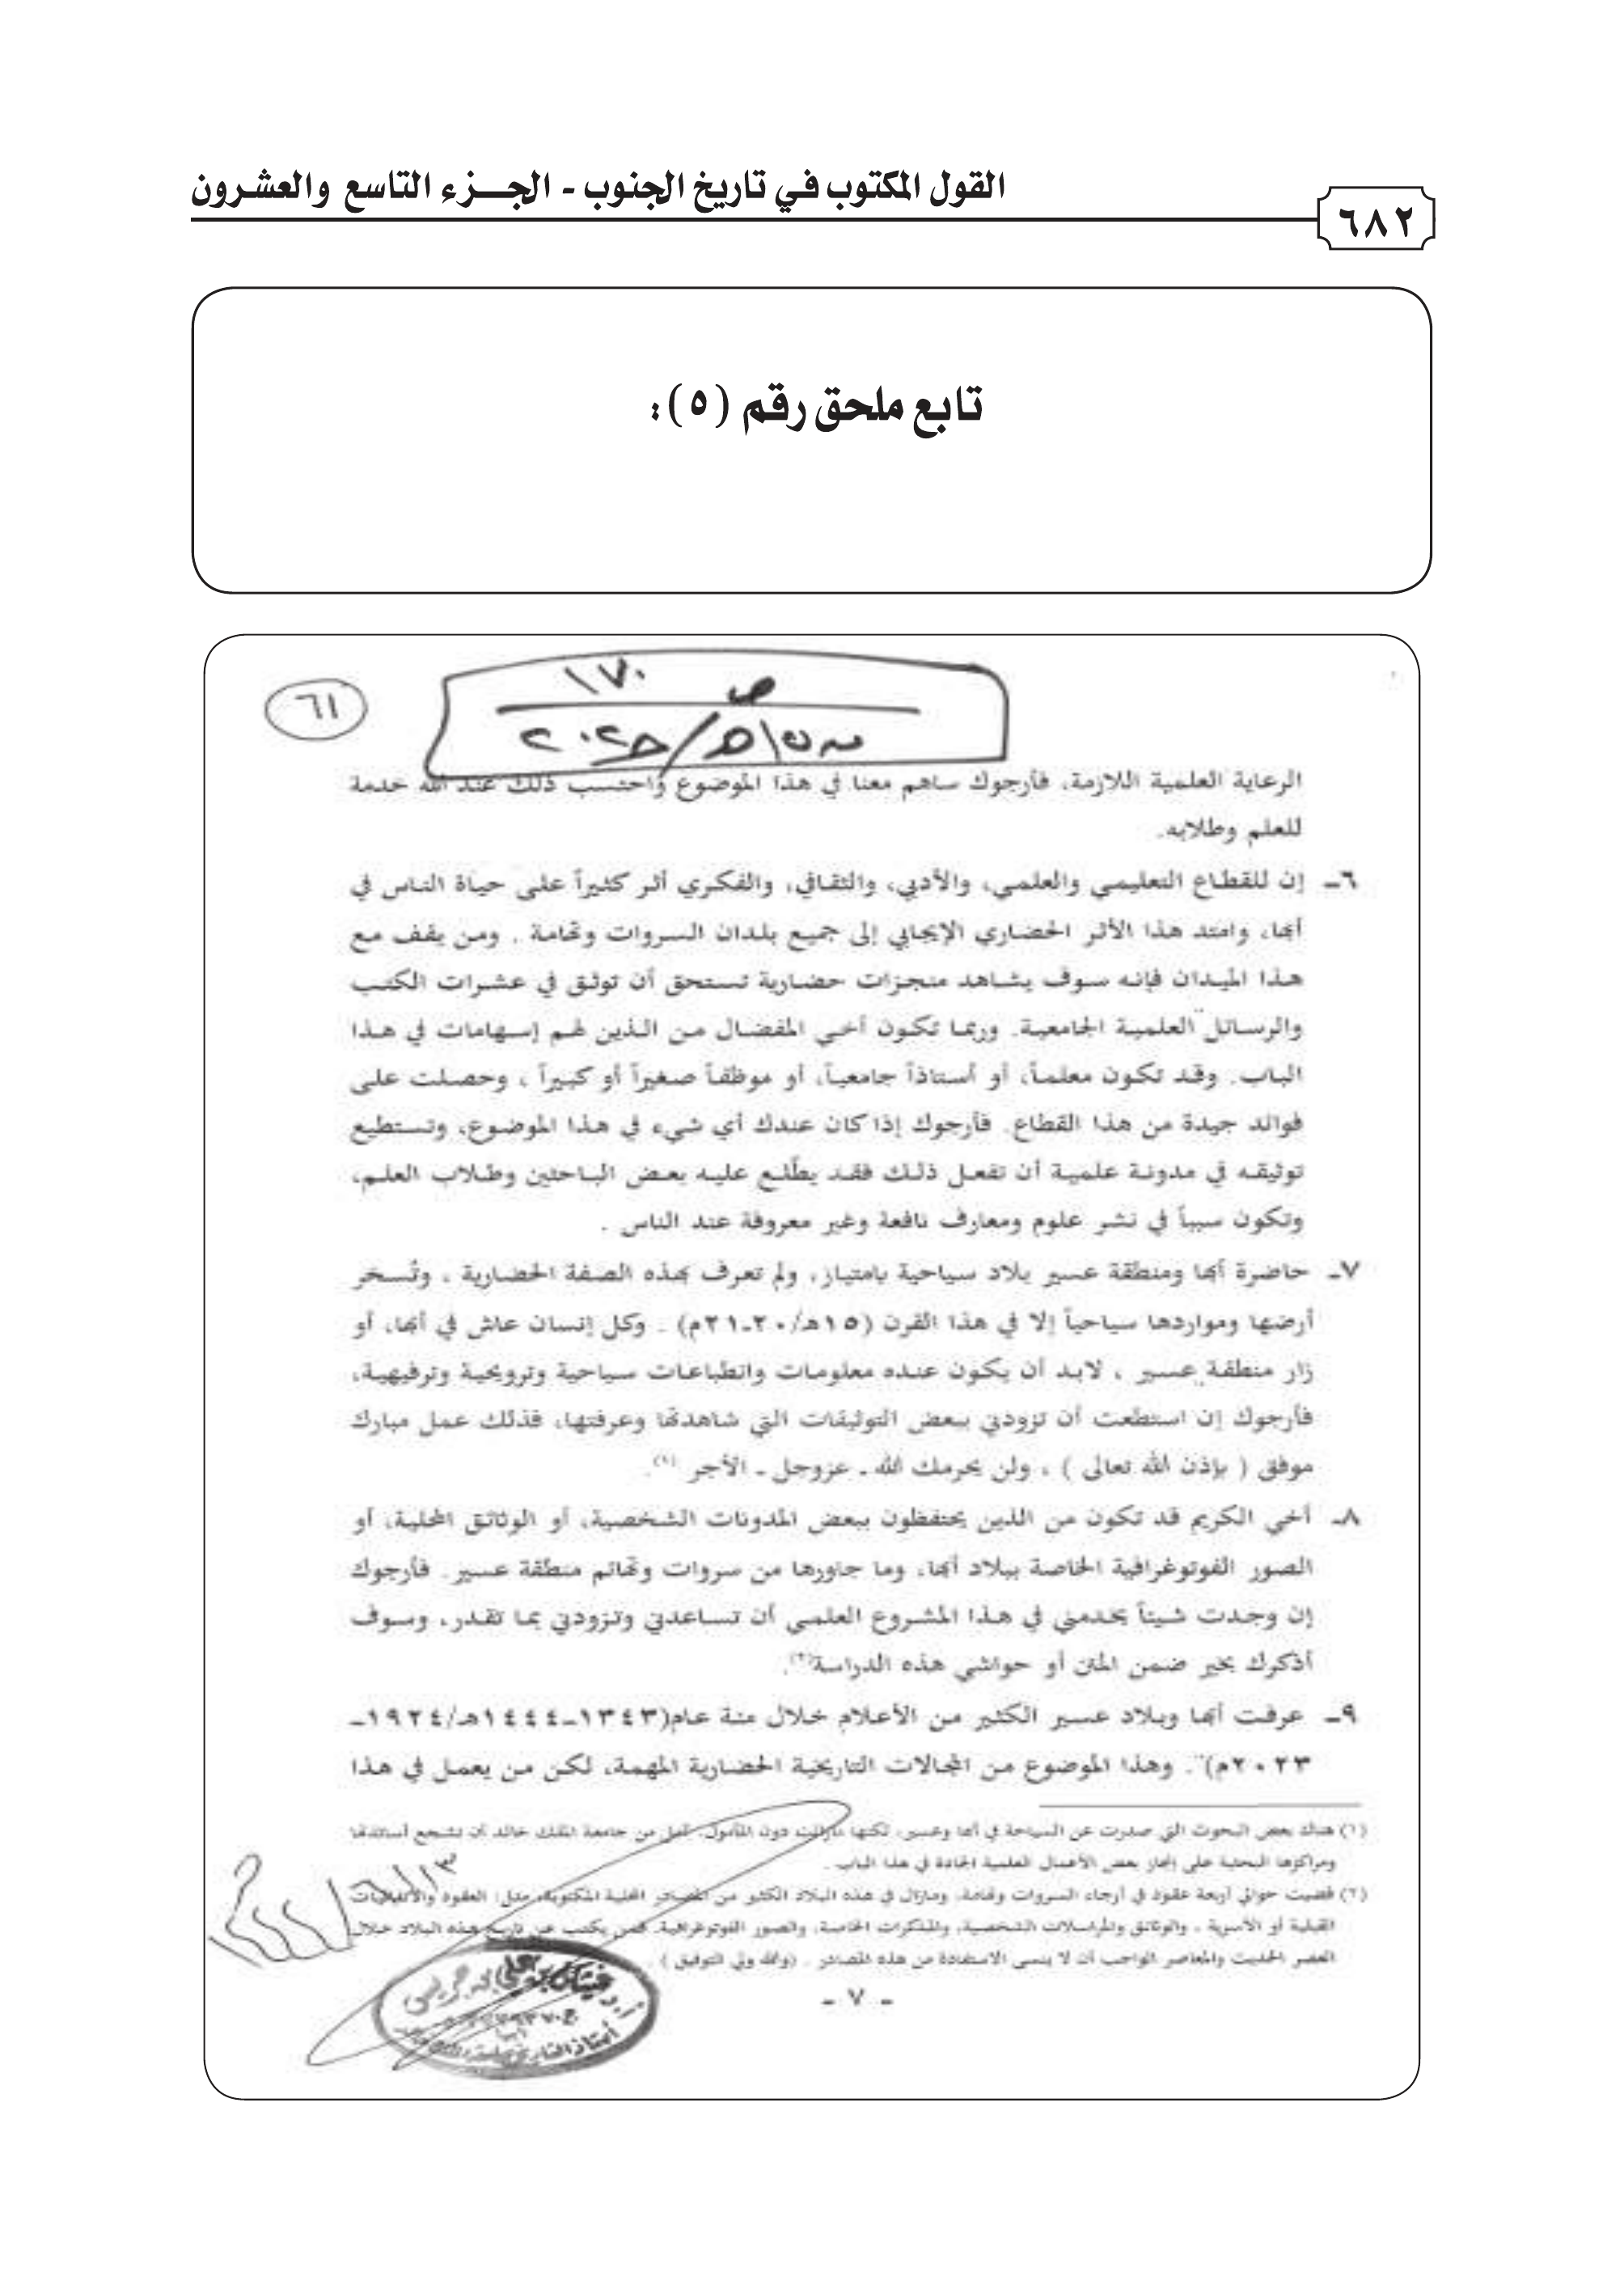 القول المكتوب في تاريخ الجنوب - الجـــزء التاسع والعشرون
٦٨٢
تابع ملحق رقم (٥):
١٧٠
ص
٦١
الرعاية العلمية اللازمة، فأرجوك ساهم معنا في هذا الموضوع واحتسب ذلك عند الله خدمة
للعلم وطلابه.
٦- إن للقطاع التعليمي والعلمي، والأدبي، والثقافي، والفكري أثر كثيراً على حياة الناس في
أبها، وامتد هذا الأثر الحضاري الإيجابي إلى جميع بلدان السروات وتهامة . ومن يقف مع
هذا الميدان فإنه سوف يشاهد منجزات حضارية تستحق أن توثق في عشرات الكتب
والرسائل العلمية الجامعية. وربما تكون أخي المفضال من الذين لهم إسهامات في هذا
الباب. وقد تكون معلماً، أو أستاذاً جامعياً، أو موظفاً صغيراً أو كبيراً ، وحصلت على
فوائد جيدة من هذا القطاع. فأرجوك إذا كان عندك أي شيء في هذا الموضوع، وتستطيع
توثيقه في مدونة علمية أن تفعل ذلك فقد يطّلع عليه بعض الباحثين وطلاب العلم،
وتكون سبباً في نشر علوم ومعارف نافعة وغير معروفة عند الناس .
٧- حاضرة أبها ومنطقة عسير بلاد سياحية بامتياز، ولم تعرف بهذه الصفة الحضارية ، وتُسخر
أرضها ومواردها سياحياً إلا في هذا القرن (١٥هـ/٢٠-٢١م) . وكل إنسان عاش في أبها، أو
زار منطقة عسير ، لابد أن يكون عنده معلومات وانطباعات سياحية وترويحية وترفيهية،
فأرجوك إن استطعت أن تزودني ببعض التوثيقات التي شاهدتها وعرفتها، فذلك عمل مبارك
موفق ( بإذن الله تعالى ) ، ولن يحرمك الله - عزوجل - الأجر (١).
٨- أخي الكريم قد تكون من الذين يحتفظون ببعض المدونات الشخصية، أو الوثائق المحلية، أو
الصور الفوتوغرافية الخاصة ببلاد أبها، وما جاورها من سروات وتهائم منطقة عسير. فأرجوك
إن وجدت شيئاً يخدمني في هذا المشروع العلمي أن تساعدني وتزودني بما تقدر، وسوف
أذكرك بخير ضمن المتن أو حواشي هذه الدراسة(٢).
٩- عرفت أبها وبلاد عسير الكثير من الأعلام خلال مئة عام(١٣٤٣-١٤٤٤هـ/١٩٢٤-
٢٠٢٣م). وهذا الموضوع من المجالات التاريخية الحضارية المهمة، لكن من يعمل في هذا
(١) هناك بعض البحوث التي صدرت عن السياحة في أبها وعسير، لكنها مازالت دون المأمول، نأمل من جامعة الملك خالد أن تشجع أساتذتها
ومراكزها البحثية على إنجاز بعض الأعمال العلمية الجادة في هذا الباب .
(٢) قضيت حوالي أربعة عقود في أرجاء السروات وتهامة، ومازال في هذه البلاد الكثير من المصادر المحلية المكتوبة، مثل: العقود والاتفاقيات
القبلية أو الأسرية ، والوثائق والمراسلات الشخصية، والمذكرات الخاصة، والصور الفوتوغرافية. فمن يكتب عن تاريخ هذه البلاد خلال
العصر الحديث والمعاصر الواجب أن لا ينسى الاستفادة من هذه المصادر . (والله ولي التوفيق )
- ٧ -